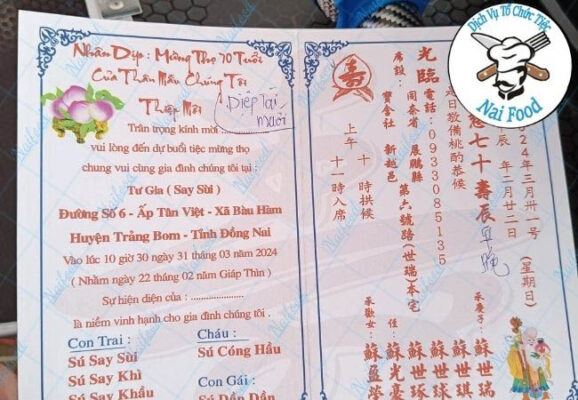 Nhân Dịp : Mừng Thọ 70 Tuổi
Của Thân Mẫu Chúng Tôi
Thiệp Mời
Diệp Tài
Trân trọng kính mời
vui lòng đến dự buổi tiệc mừng thọ
chung vui cùng gia đình chúng tôi tại :
Tư Gia ( Say Sùi )
Đường Số 6 - Ấp Tân Việt - Xã Bàu Hàm
Huyện Trảng Bom - Tỉnh Đồng Nai
Vào lúc 10 giờ 30 ngày 31 tháng 03 năm 2024
( Nhằm ngày 22 tháng 02 năm Giáp Thìn )
Sự hiện diện của : ....................
là niềm vinh hạnh cho gia đình chúng tôi .
Con Trai :
Sú Say Sùi
Sú Say Khì
Sú Say Khầu
Cháu :
Sú Cóng Hầu
Con Gái :
Sú Dần Dần
Dịch Vụ Tổ Chức Tiệc
Nai Food
24年三月卅一号 (星期日)
辰 年二月廿二日
七十壽辰
早晚
是日敬備桃酌恭候
光臨
電話：0933085135
席設：
同奈省 展鵬縣
寶含社 新越邑 第六號路(世瑞)本宅
壽
上午 十 時拱候
十一時入席
承慶子：
蘇世瑞
蘇世琪
蘇世琢
蘇光豪
承歡女：
蘇盈